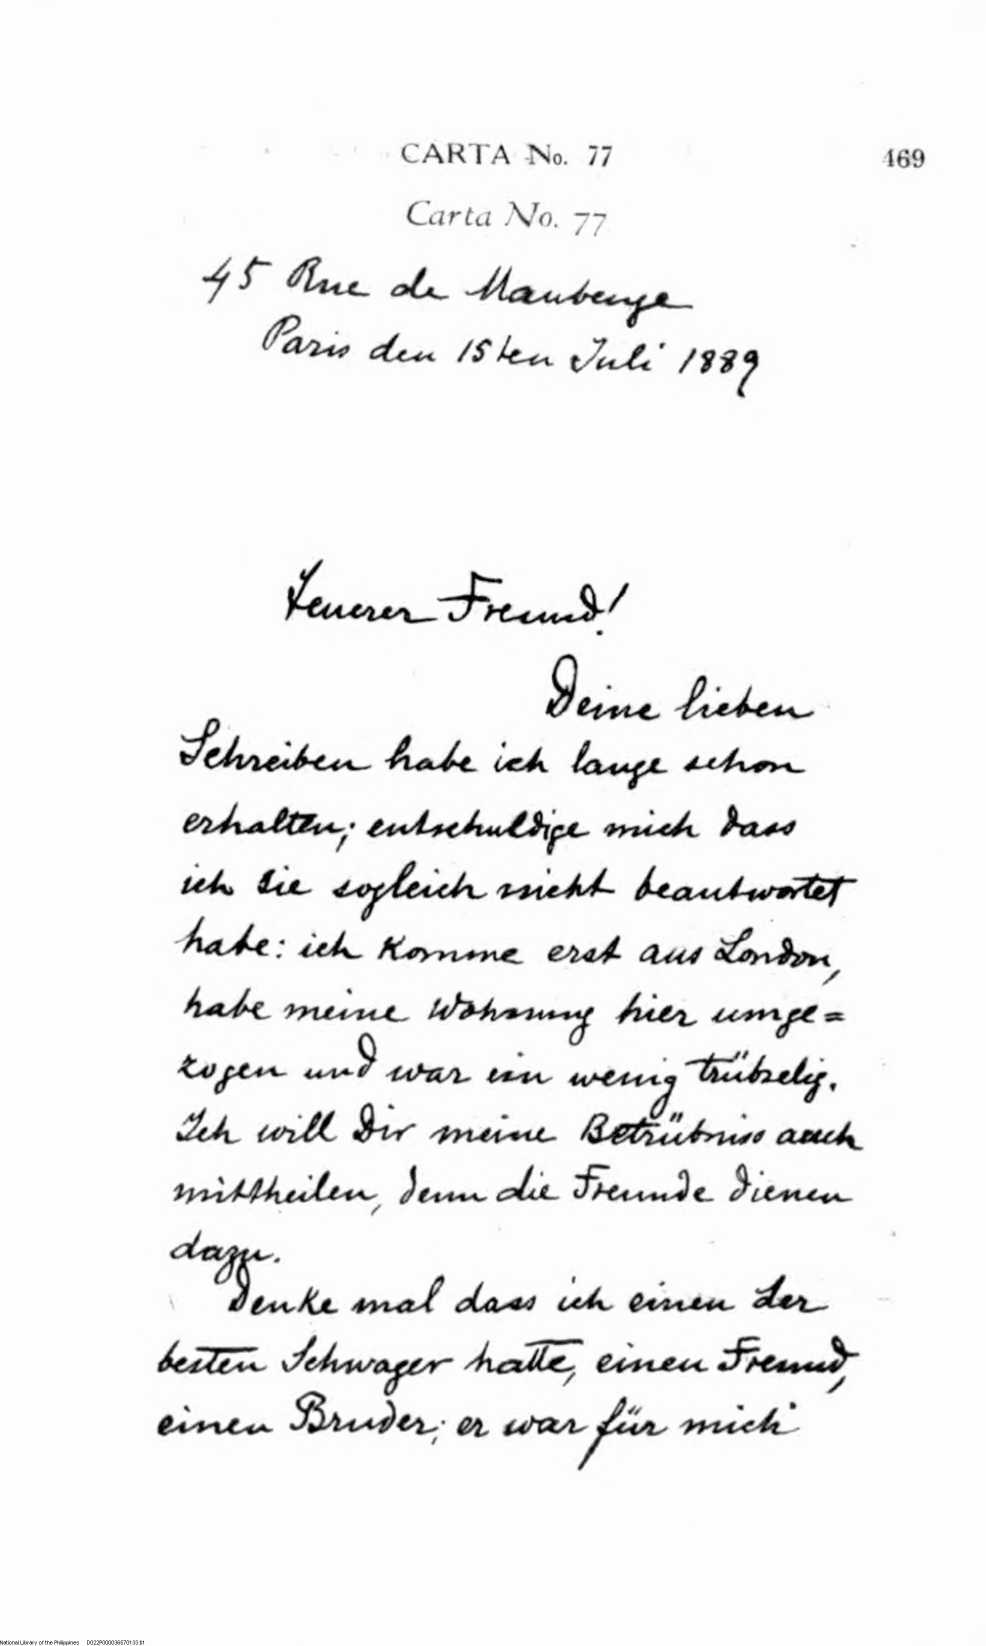 CARTA No. 77
469
Carta No. 77
45 Rue de Maubeuge
Paris den 15ten Juli 1889
Teuerer Freund!
Deine lieben
Schreiben habe ich lange schon
erhalten; entschuldige mich dass
ich sie sogleich nicht beantwortet
habe: ich komme erst aus London,
habe meine Wohnung hier umge=
zogen und war ein wenig trübselig.
Ich will Dir meine Betrübniss auch
mittheilen, denn die Freunde dienen
dazu.
Denke mal dass ich einen der
besten Schwager hatte, einen Freund,
einen Bruder; er war für mich
National Library of the Philippines